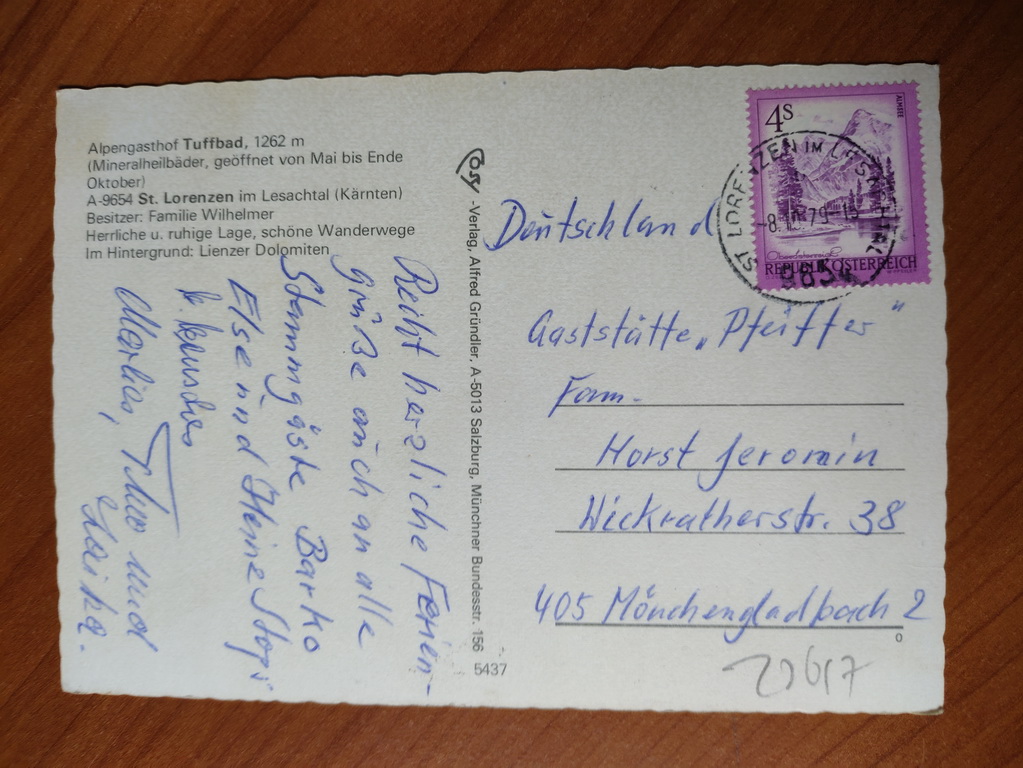 Alpengasthof Tuffbad, 1262 m
(Mineralheilbäder, geöffnet von Mai bis Ende
Oktober)
A-9654 St. Lorenzen im Lesachtal (Kärnten)
Besitzer: Familie Wilhelmer
Herrliche u. ruhige Lage, schöne Wanderwege
Im Hintergrund: Lienzer Dolomiten
Recht herzliche Ferien-
grüße auch an alle
Stammgäste
Else und Heinz
wünschen
Marlies, Theo und
Cosy -Verlag, Alfred Gründler, A-5013 Salzburg, Münchner Bundesstr. 156
5437
4S
ALMSEE
Oberösterreich
REPUBLIK ÖSTERREICH
ST LORENZEN IM LESACHTAL
-8.10.79-15
9654
Deutschland
Gaststätte „Pfeiffer"
Fam.
Horst Jeromin
Wickratherstr. 38
405 Mönchengladbach 2